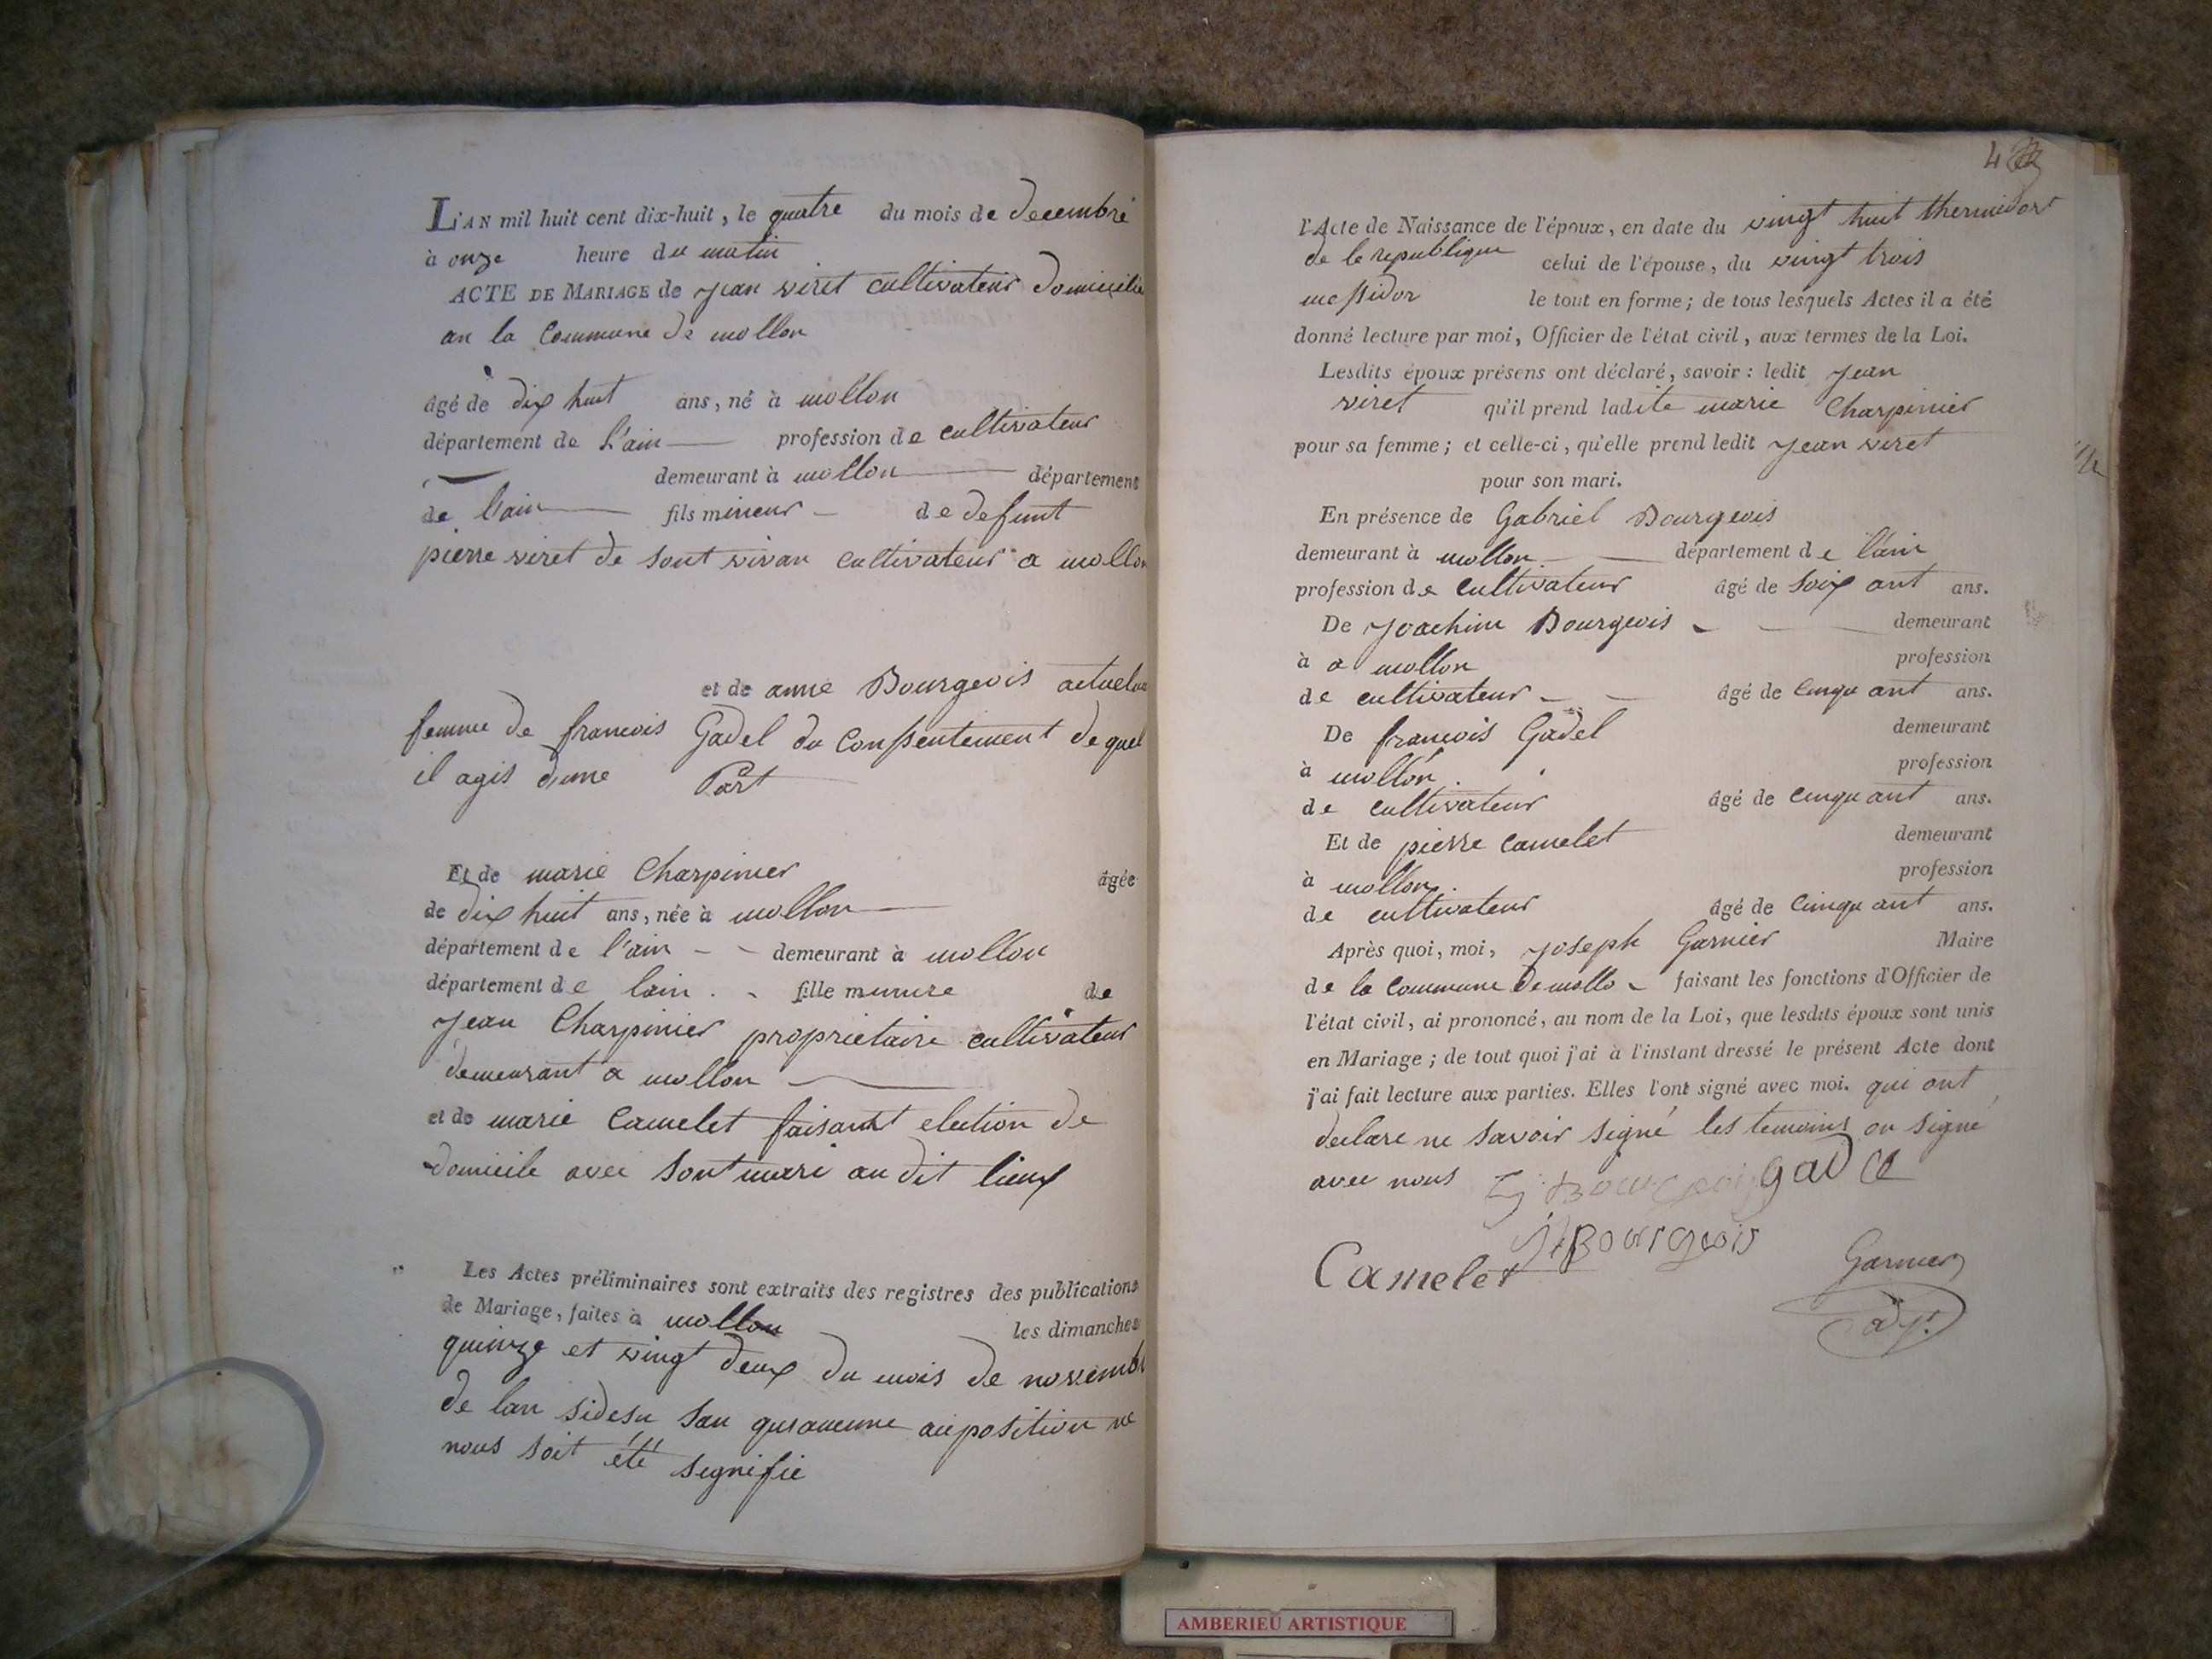 L'AN mil huit cent dix-huit, le quatre du mois de decembre
à onze heure du matin
ACTE DE MARIAGE de jean viret cultivateur domicilie
an la Commune de mollon
âgé de dix huit ans, né à mollon
département de L'ain profession de cultivateur
demeurant à mollon département
de l'ain fils mineur de defunt
pierre viret de sont vivan cultivateur a mollon
et de anne Bourgeois
femme de francois Gadel du Conssentement de quel
il agis d'une Part
Et de marie Charpinier âgée
de dix huit ans, née à mollon
département de l'ain demeurant à mollon
département de lain fille mineure de
jean Charpinier proprietaire cultivateur
demeurant a mollon
et de marie Camelet faisant election de
domicile avec sont mari au dit lieux
Les Actes préliminaires sont extraits des registres des publications
de Mariage, faites à mollon les dimanches
quinze et vingt deux du mois de novembre
de lan sidesu san
nous soit été signifie
4
l'Acte de Naissance de l'époux, en date du vingt huit thermidort
de le republique celui de l'épouse, du vingt trois
messidor le tout en forme; de tous lesquels Actes il a été
donné lecture par moi, Officier de l'état civil, aux termes de la Loi.
Lesdits époux présens ont déclaré, savoir: ledit jean
viret qu'il prend ladite marie Charpinier
pour sa femme; et celle-ci, qu'elle prend ledit jean viret
pour son mari.
En présence de Gabriel Bourgeois
demeurant à mollon département de l'ain
profession de cultivateur âgé de soix ant ans.
De joachim Bourgeois demeurant
à a mollon profession
de cultivateur âgé de cinqu ant ans.
De francois Gadel demeurant
à mollon profession
de cultivateur âgé de cinqu ant ans.
Et de pierre camelet demeurant
à mollon profession
de cultivateur âgé de cinqu ant ans.
Après quoi, moi, joseph Garnier Maire
de la commune de mollo faisant les fonctions d'Officier de
l'état civil, ai prononcé, au nom de la Loi, que lesdits époux sont unis
en Mariage; de tout quoi j'ai à l'instant dressé le présent Acte dont
j'ai fait lecture aux parties. Elles l'ont signé avec moi. qui ont
declare ne savoir signé les temoins on signé
avec nous G Bourgeois Gadel
Bourgeois
Camelet Garnier
AMBERIEU ARTISTIQUE